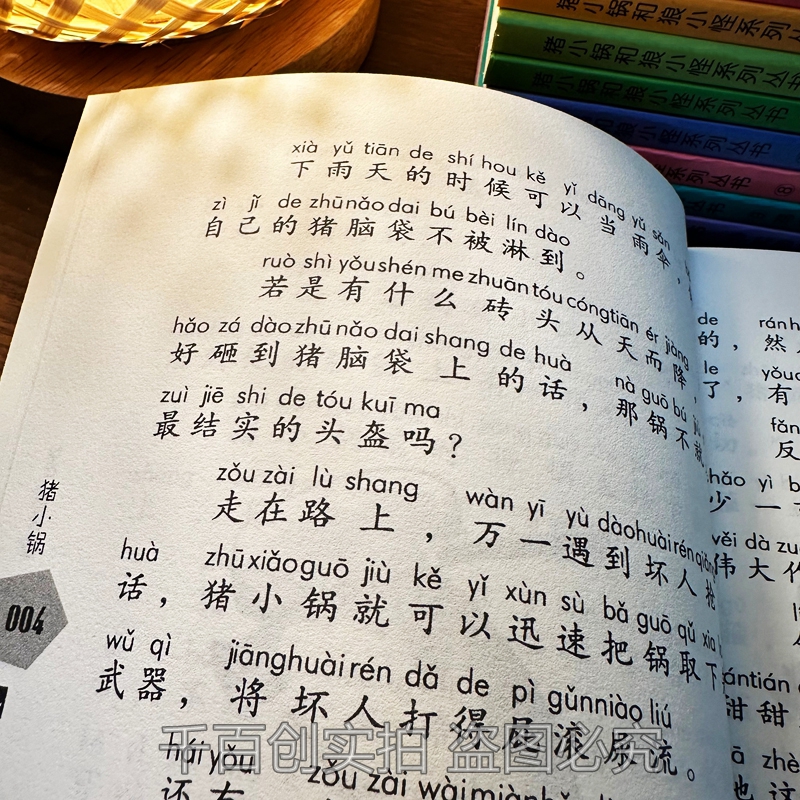 猪小锅和狼小怪系列丛书
猪小锅和狼小怪系列丛书
猪小锅和狼小怪系列丛书
xià yǔ tiān de shí hou kě yǐ dāng yǔ sǎn
下雨天的时候可以当雨伞，
zì jǐ de zhū nǎo dai bú bèi lín dào
自己的猪脑袋不被淋到。
ruò shì yǒu shén me zhuān tóu cóng tiān ér jiàng
若是有什么砖头从天而降，
hǎo zá dào zhū nǎo dai shang de huà nà guō bú
好砸到猪脑袋上的话，那锅不就
zuì jiē shi de tóu kuī ma
最结实的头盔吗？
zǒu zài lù shang wàn yī yù dào huài rén qiǎng
走在路上，万一遇到坏人抢
huà zhū xiǎo guō jiù kě yǐ xùn sù bǎ guō qǔ xia
话，猪小锅就可以迅速把锅取下
wǔ qì jiāng huài rén dǎ de pì gǔn niào liú
武器，将坏人打得屁滚尿流。
hái yǒu zǒu zài wài miàn
还有
猪小锅
004
de rán
的，然
le yǒu
了，有
fǎn
反
shǎo yì
少一
wěi dà zuò
伟大作
甜甜
zhè
也这
千百创实拍 盗图必究